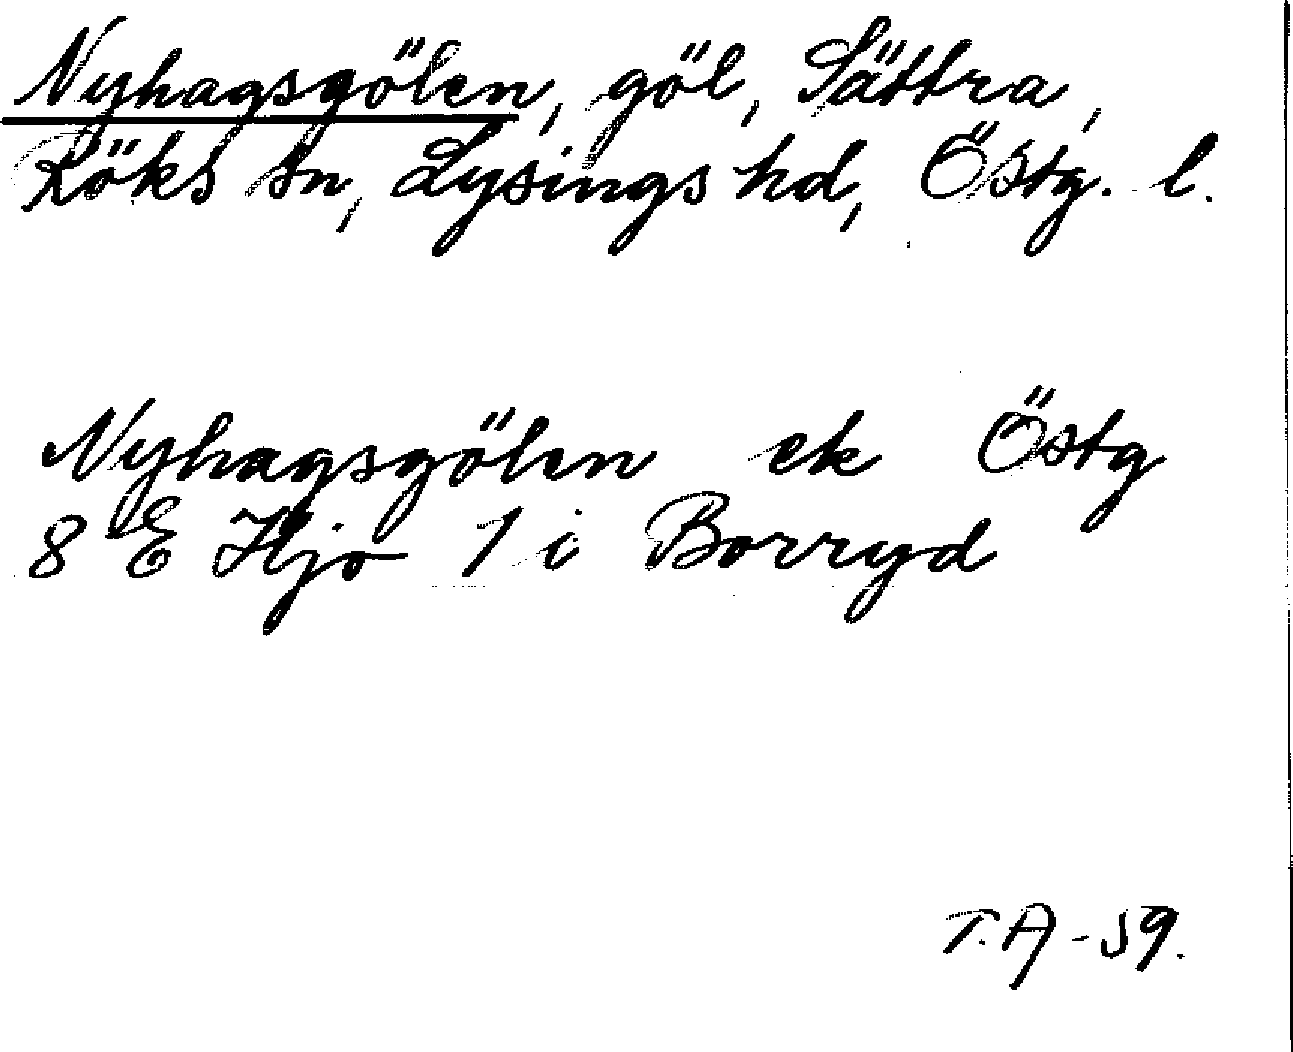 Nyhagsgölen, göl, Sättra,
Röks sn, Lysings hd, Östg. l.
Nyhagsgölen ek Östg
8 E Hjo 1 i Borryd
T.A-59.